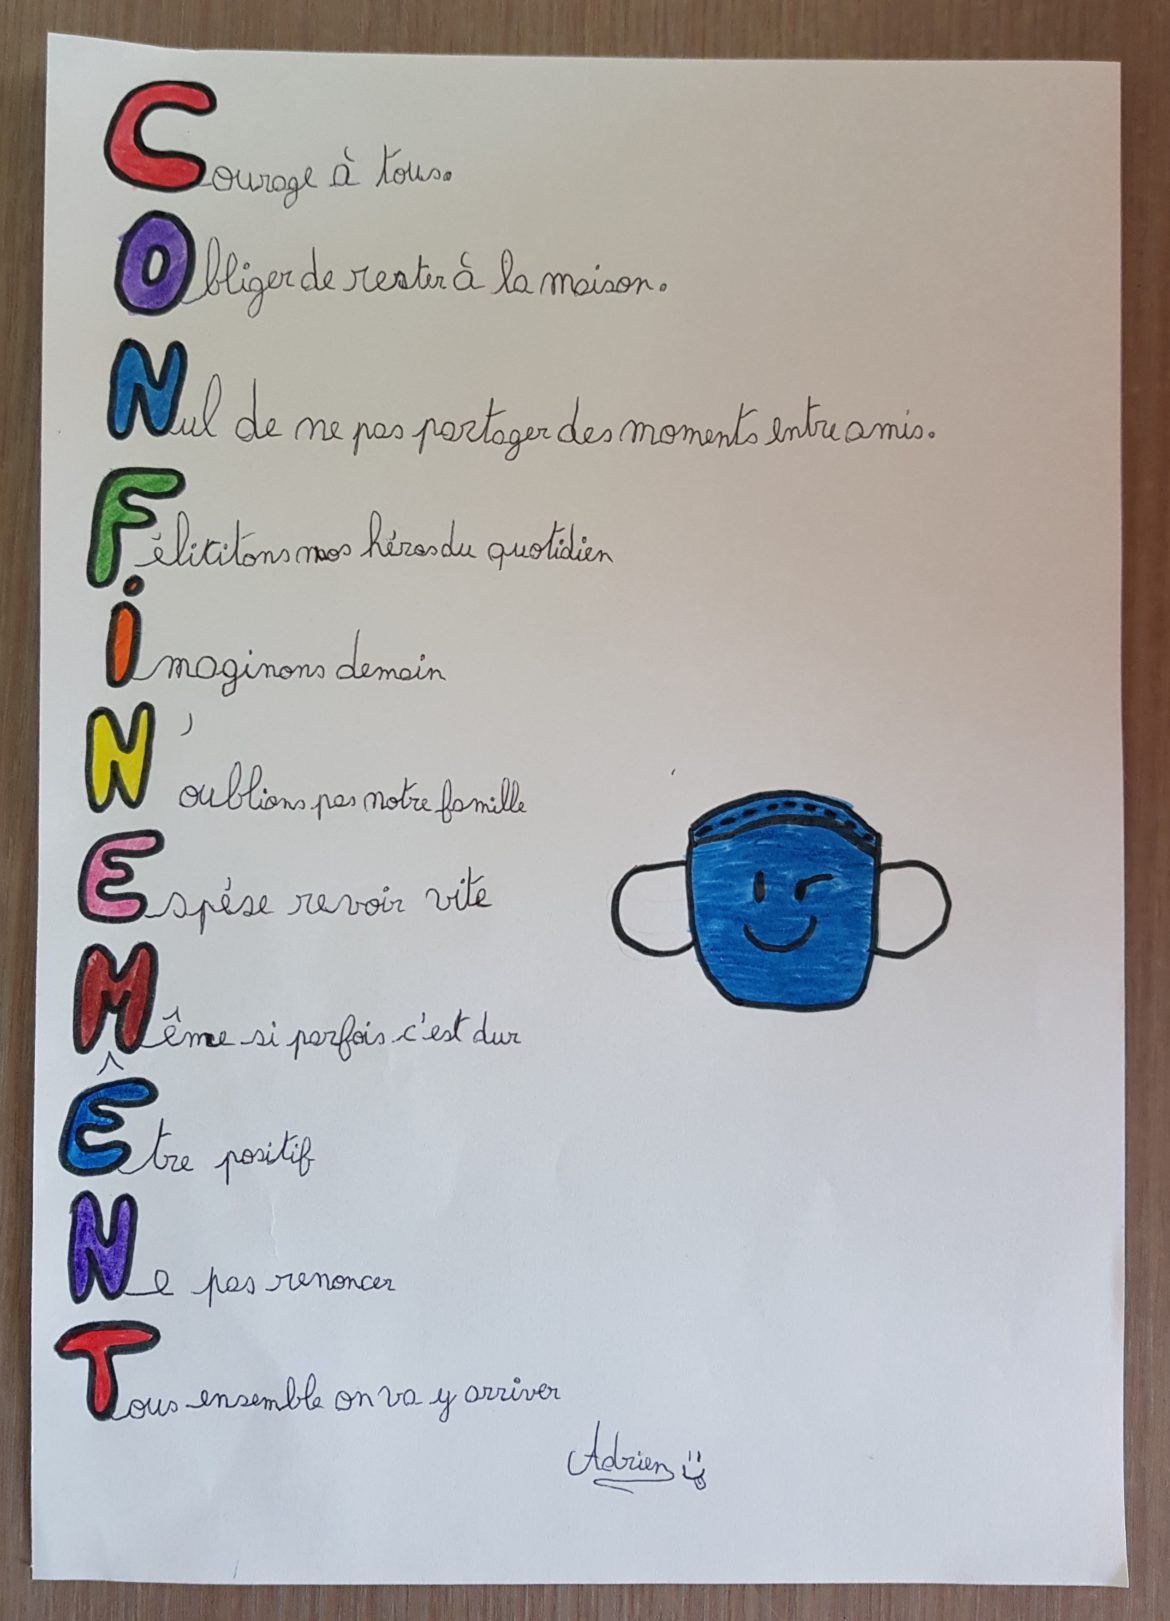 Courage à tous.
Obliger de rester à la maison.
Nul de ne pas partager des moments entre amis.
Félicitons nos héros du quotidien
imaginons demain
N'oublions pas notre famille
Espére revoir vite
Même si parfois c'est dur
Être positif
Ne pas renoncer
Tous ensemble on va y arriver
Adrien